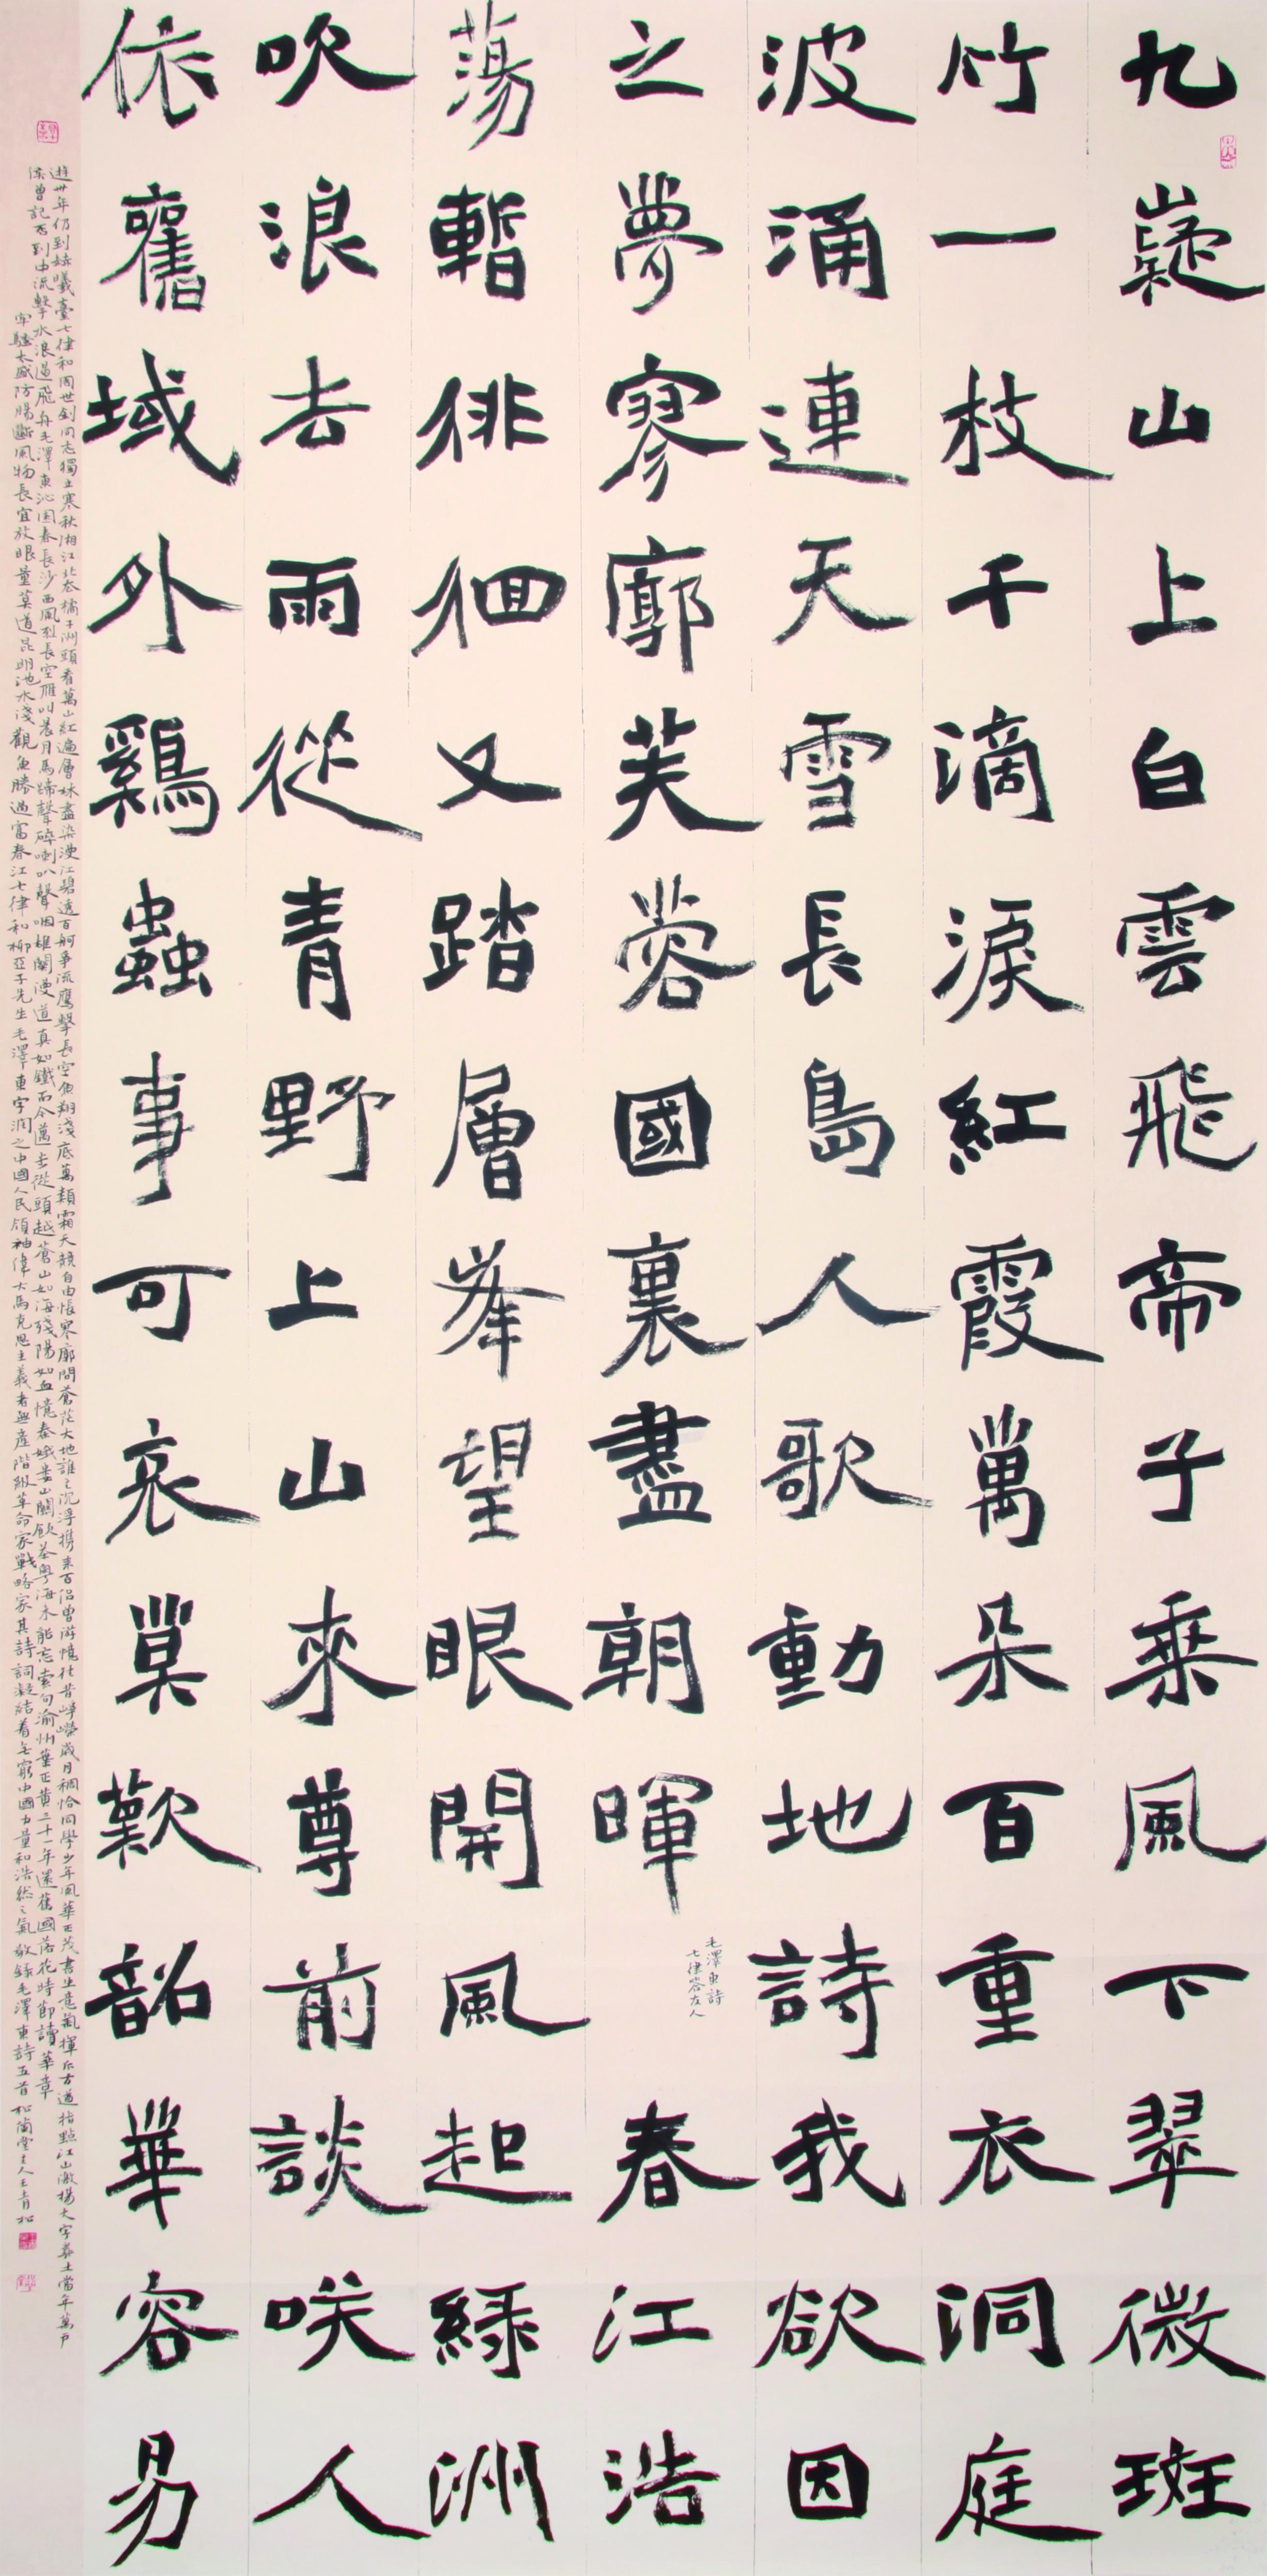 九嶷山上白雲飛帝子乘風下翠微斑
竹一枝千滴淚紅霞萬朵百重衣洞庭
波涌連天雪長島人歌動地詩我欲因
之夢寥廓芙蓉國裏盡朝暉
毛澤東詩
七律答友人
春江浩
蕩暫徘徊又踏層峯望眼開風起綠洲
吹浪去雨從青野上山來尊前談咲人
依舊域外鷄蟲事可哀莫歎韶華容易
逝卅年仍到赫曦臺七律和周世釗同志獨立寒秋湘江北去橘子洲頭看萬山紅遍層林盡染漫江碧透百舸爭流鷹擊長空魚翔淺底萬類霜天競自由悵寥廓問蒼茫大地誰主沉浮攜來百侶曾游憶往昔崢嶸歲月稠恰同學少年風華正茂書生意氣揮斥方遒指點江山激揚文字糞土當年萬戶
侯曾記否到中流擊水浪遏飛舟毛澤東沁園春長沙西風烈長空雁叫晨月馬蹄聲碎喇叭聲咽雄關漫道真如鐵而今邁步從頭越蒼山如海殘陽如血憶秦娥婁山關飲茶粵海未能忘索句渝州葉正黄三十一年還舊國落花時節讀華章
牢騷太盛防腸斷風物長宜放眼量莫道昆明池水淺觀魚勝過富春江七律和柳亞子先生毛澤東字潤之中國人民領袖偉大馬克思主義者無產階級革命家戰略家其詩詞凝結着無窮中國力量和浩然之氣敬錄毛澤東詩五首 松堂主人王青松